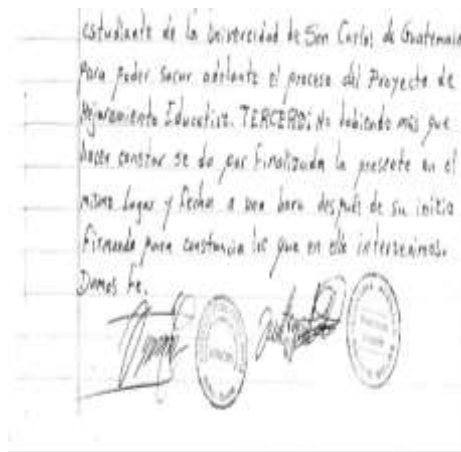 estudiante de la Universidad de San Carlos de Guatemala
Para poder sacar adelante el proceso del Proyecto de
Mejoramiento Educativo. TERCERO: No habiendo más que
hacer constar se da por Finalizada la presente en el
mismo lugar y fecha a una hora después de su inicio
Firmando para constancia los que en ella intervenimos.
Damos Fe.